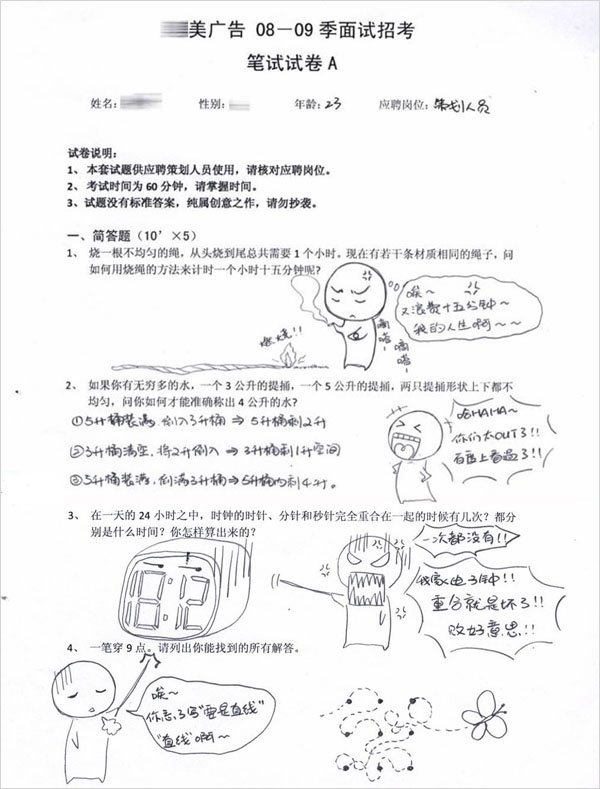 美广告 08－09 季面试招考
笔试试卷 A
姓名: 性别: 年龄: 23 应聘岗位: 策划人员
试卷说明:
1、本套试题供应聘策划人员使用，请核对应聘岗位。
2、考试时间为 60 分钟，请掌握时间。
3、试题没有标准答案，纯属创意之作，请勿抄袭。
一、简答题（10’×5）
1、 烧一根不均匀的绳，从头烧到尾总共需要 1 个小时。现在有若干条材质相同的绳子，问
如何用烧绳的方法来计时一个小时十五分钟呢?
唉～
又浪费十五分钟～
我的人生啊～～
嘀嗒~
嘀嗒~
燃烧!!
2、 如果你有无穷多的水，一个 3 公升的提捅，一个 5 公升的提捅，两只提捅形状上下都不
均匀，问你如何才能准确称出 4 公升的水?
①5升桶装满 倒入3升桶⇒5升桶剩2升
②3升桶清空，将2升倒入⇒3升桶剩1升空间
③5升桶装满，倒满3升桶⇒5升桶内剩4升。
哈HAHA～
你们太OUT了!!
百度上看过了!!
3、 在一天的 24 小时之中，时钟的时针、分针和秒针完全重合在一起的时候有几次? 都分
别是什么时间? 你怎样算出来的?
一次都没有!!
电子钟!!
重合就是坏了!!
败好意思!!
18:12
4、 一笔穿 9 点。请列出你能找到的所有解答。
唉～
你忘了写“要是直线”
“直线”啊～